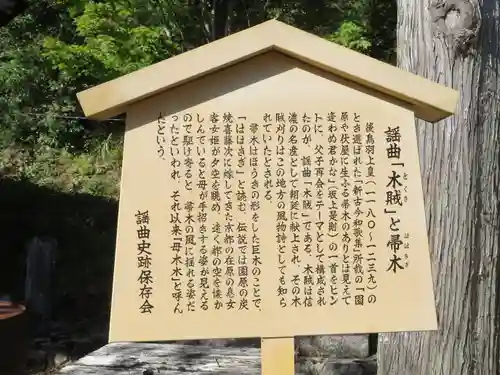 謡曲「木賊」と帚木
とくさ
ははきぎ
後鳥羽上皇（一一八〇～一二三九）の
とき選ばれた「新古今和歌集」所載の「園
原や伏屋に生ふる帚木のありとは見えて
逢わぬ君かな」（坂上是則）の一首をヒン
トに、父子再会をテーマとして構成され
たのが、謡曲「木賊」である。木賊は信
濃の名産として朝廷に献上され、その木
賊刈りはこの地方の風物詩としても知ら
れていたとされる。
帚木はほうきの形をした巨木のことで、
「ははきぎ」と読む。伝説では園原の炭
焼喜藤次に嫁してきた京都の在原の息女
客女姫が夕空を眺め、遠く都の空を懐か
しんでいると母が手招きする姿が見える
ので駆け寄ると、帚木の風に揺れる姿だ
ったといわれ、それ以来「母木木」と呼ん
だという。
謡曲史跡保存会